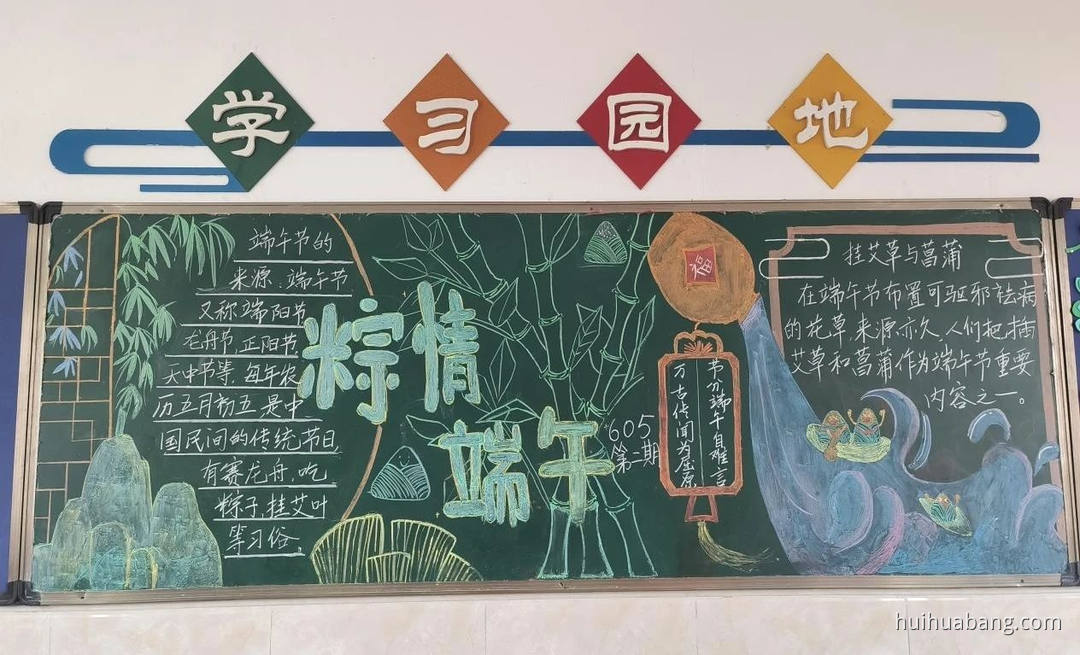 学习园地
端午节的
来源:端午节
又称端阳节
龙舟节、正阳节
天中节等,每年农
历五月初五是中
国民间的传统节日
有赛龙舟,吃
粽子,挂艾叶
等习俗。
粽情
端午
605
第二期
福
节分端午自难言
万古传闻为屈原
挂艾草与菖蒲
在端午节布置可驱邪祛病
的花草来源亦久,人们把插
艾草和菖蒲作为端午节重要
内容之一。
huihuabang.com